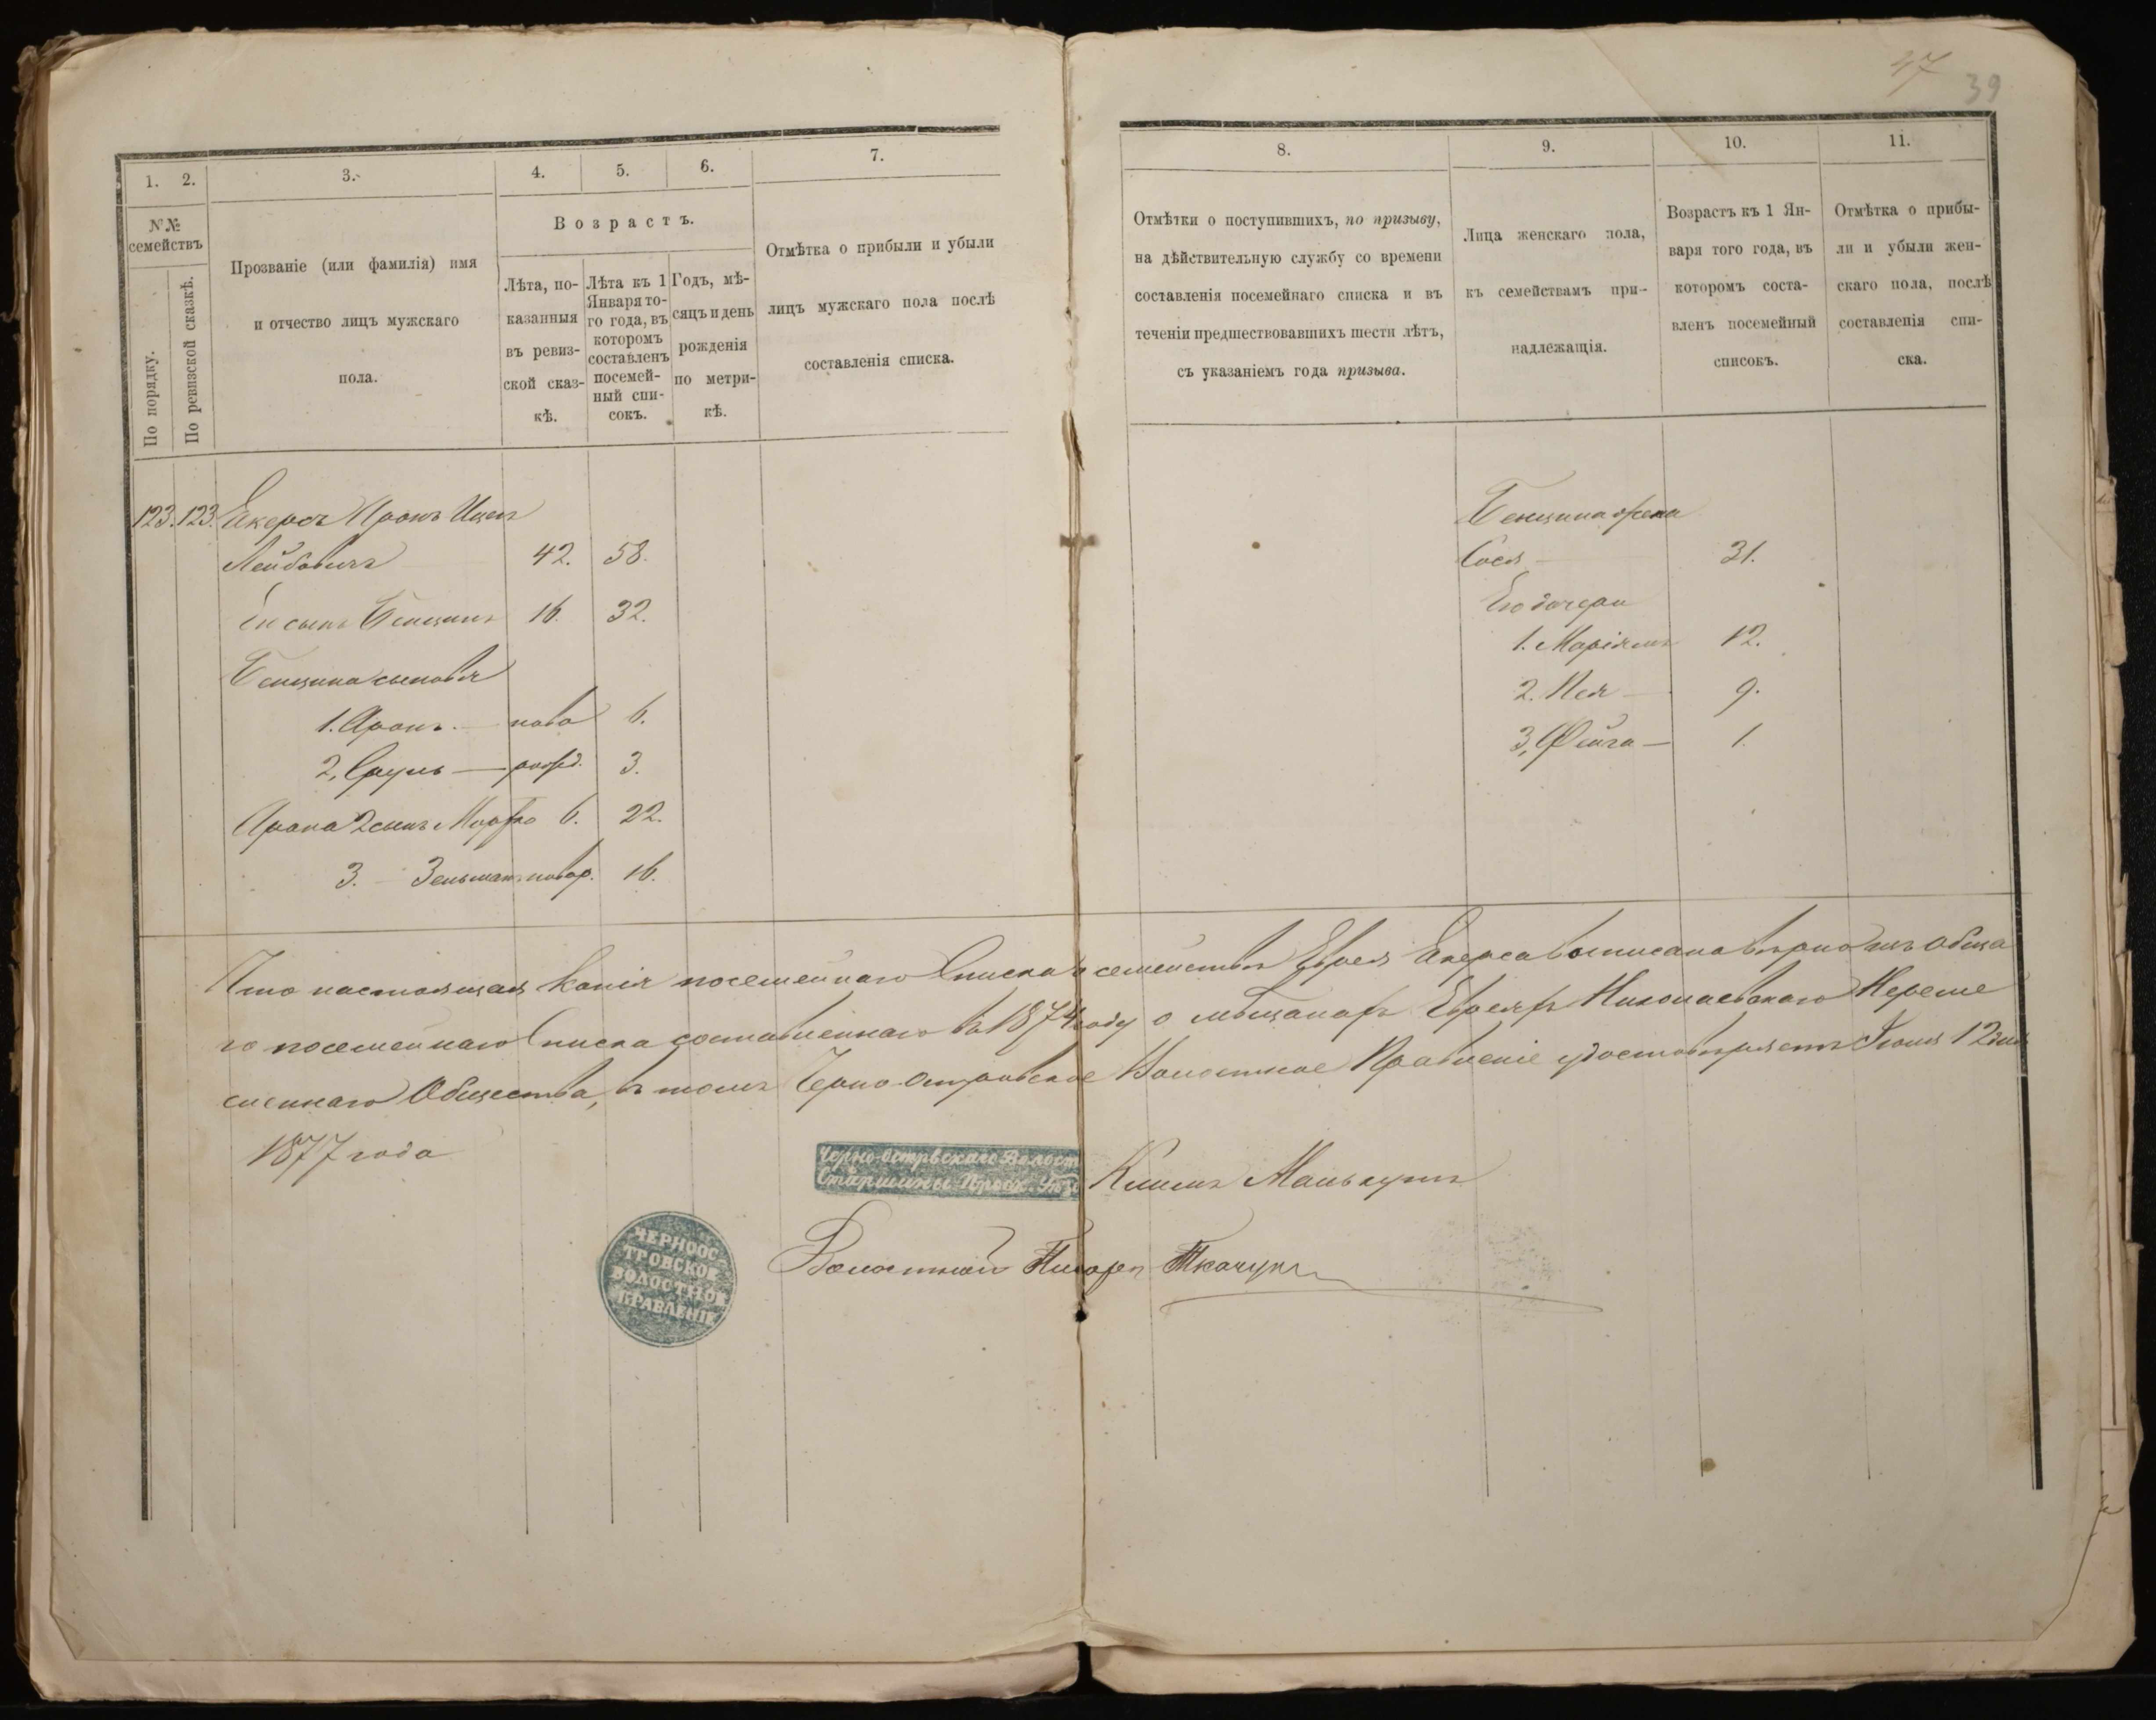 47
39
1.
2.
3.
4.
5.
6.
7.
№№
семействъ
По порядку.
По ревизской сказкѣ.
Прозваніе (или фамилія) имя
и отчество лицъ мужскаго
пола.
Возрастъ.
Лѣта, по-
казанныя
въ ревиз-
ской сказ-
кѣ.
Лѣта къ 1
Января то-
го года, въ
которомъ
составленъ
посемей-
ный спи-
сокъ.
Годъ, мѣ-
сяцъ и день
рожденія
по метри-
кѣ.
Отмѣтка о прибыли и убыли
лицъ мужскаго пола послѣ
составленія списка.
8.
9.
10.
11.
Отмѣтки о поступившихъ, по призыву,
на дѣйствительную службу со времени
составленія посемейнаго списка и въ
теченіи предшествовавшихъ шести лѣтъ,
съ указаніемъ года призыва.
Лица женскаго пола,
къ семействамъ при-
надлежащія.
Возрастъ къ 1 Ян-
варя того года, въ
которомъ соста-
вленъ посемейный
списокъ.
Отмѣтка о прибы-
ли и убыли жен-
скаго пола, послѣ
составленія спи-
ска.
123. 123. Екерсъ Аронъ Ицек
Лейбовичъ 42. 58.
Ею сынъ Бенционъ 16. 32.
Бенциона сыновья
1. Аронъ. — ново 6.
2, Сруль — рожд. 3.
Арона 2 сынъ Мордко 6. 22.
3. — Зельманъ новор. 16.
Бенциона жена
Сося — 31.
Его дочери
1. Маріямъ 12.
2. Пея — 9.
3, Фейга — 1.
Что настоящая копія посемейнаго Списка о семействѣ Еврея Екерса выписана вѣрно изъ обща
го посемейнаго Списка составленнаго въ 1874 году о мѣщанахъ Евреяхъ Николаевскаго Переме
сеннаго Общества, въ томъ Черно-Островское Волостное Правленіе удостовѣряетъ Іюня 12 дня
1877 года
Черно-Островскаго Волост
Старшины Проск. Уѣз
Климъ Манькутъ
ЧЕРНООС
ТРОВСКОЕ
ВОЛОСТНОЕ
ПРАВЛЕНІЕ
Волостной Писарь Ткачукъ